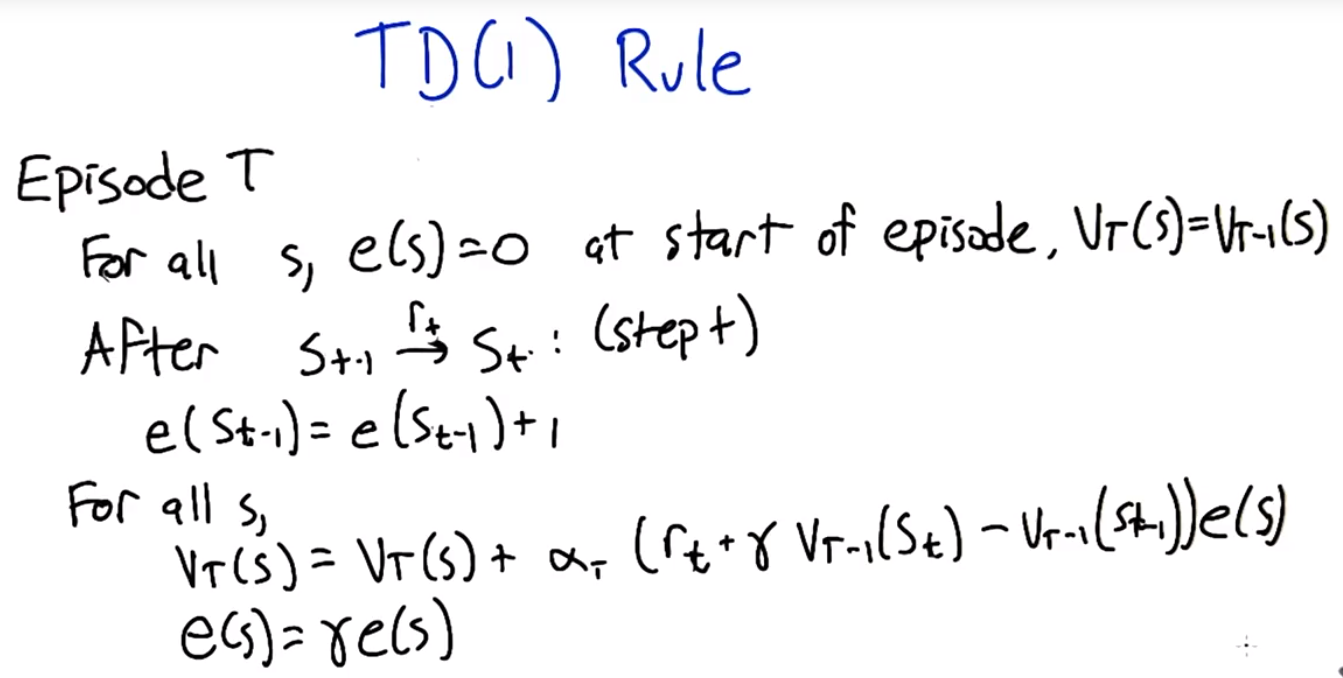 TD(1) Rule
Episode T
For all s, e(s)=0 at start of episode, V_T(s)=V_{T-1}(s)
After S_{t-1} \xrightarrow{r_t} S_t : (step t)
e(S_{t-1}) = e(S_{t-1})+1
For all s,
V_T(s) = V_T(s) + α_T (r_t + γ V_{T-1}(S_t) − V_{T-1}(S_{t-1}))e(s)
e(s) = γe(s)